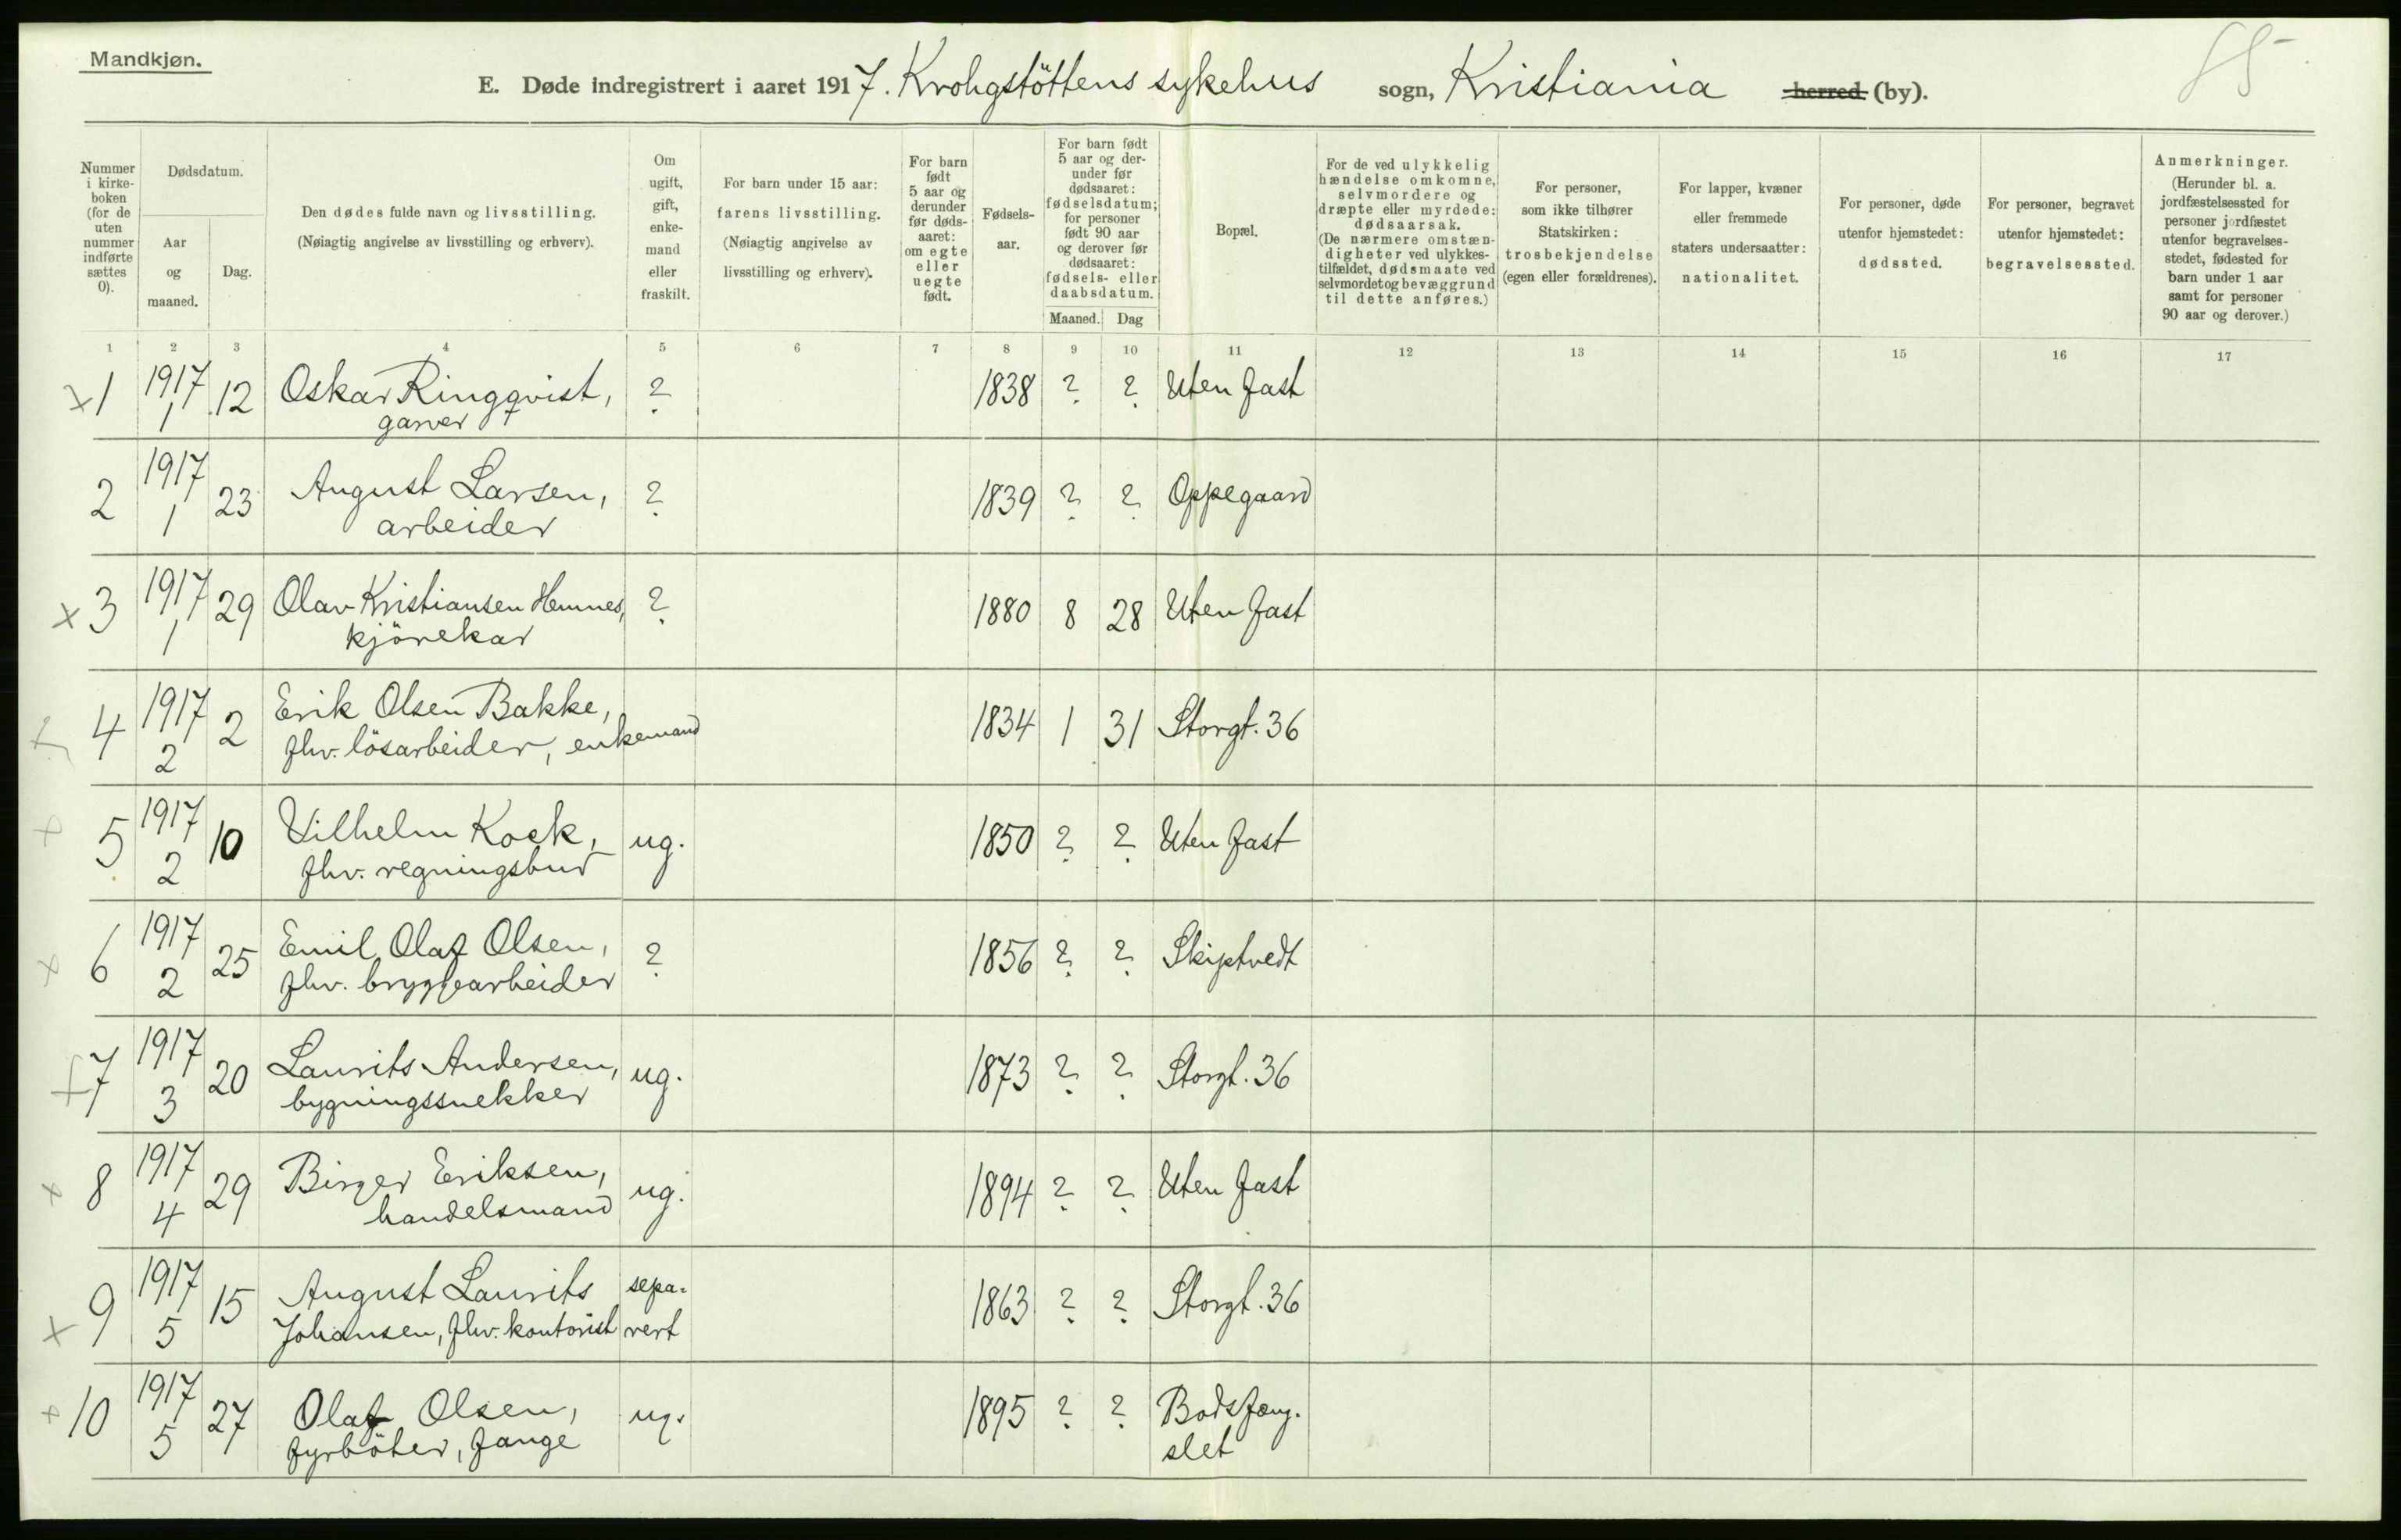 Mandkjøn.
85
E. Døde indregistrert i aaret 1917. Krohgstöttens sykehus sogn, Kristiania herred (by).
Nummer i kirkeboken (for de uten nummer indførte sættes 0).
Dødsdatum.
Aar og maaned.
Dag.
Den dødes fulde navn og livsstilling.
(Nøiagtig angivelse av livsstilling og erhverv).
Om ugift, gift, enkemand eller fraskilt.
For barn under 15 aar: farens livsstilling. (Nøiagtig angivelse av livsstilling og erhverv).
For barn født 5 aar og derunder før dødsaaret: om egte eller uegte født.
Fødselsaar.
For barn født 5 aar og derunder før dødsaaret: fødselsdatum; for personer født 90 aar og derover før dødsaaret: fødsels- eller daabsdatum.
Maaned. Dag
Bopæl.
For de ved ulykkelig hændelse omkomne, selvmordere og dræpte eller myrdede: dødsaarsak. (De nærmere omstændigheter ved ulykkestilfældet, dødsmaate ved selvmordet og bevæggrund til dette anføres.)
For personer, som ikke tilhører Statskirken: trosbekjendelse (egen eller forældrenes).
For lapper, kvæner eller fremmede staters undersaatter: nationalitet.
For personer, døde utenfor hjemstedet: dødssted.
For personer, begravet utenfor hjemstedet: begravelsessted.
Anmerkninger. (Herunder bl. a. jordfæstelsessted for personer jordfæstet utenfor begravelsesstedet, fødested for barn under 1 aar samt for personer 90 aar og derover.)
1 2 3 4 5 6 7 8 9 10 11 12 13 14 15 16 17
x 1 1917 1 12 Oskar Ringqvist, garver ? 1838 ? ? Uten fast
2 1917 1 23 August Larsen, arbeider ? 1839 ? ? Oppegaard
x 3 1917 1 29 Olav Kristiansen Hemnes, kjörekar ? 1880 8 28 Uten fast
x 4 1917 2 2 Erik Olsen Bakke, fhv. lösarbeider, enkemand 1834 1 31 Storgt. 36
x 5 1917 2 10 Vilhelm Kock, fhv. regningsbud ug. 1850 ? ? Uten fast
x 6 1917 2 25 Emil Olaf Olsen, fhv. bryggearbeider ? 1856 ? ? Skiptvedt
x 7 1917 3 20 Laurits Andersen, bygningssnekker ug. 1873 ? ? Storgt. 36
x 8 1917 4 29 Birger Eriksen, handelsmand ug. 1894 ? ? Uten fast
x 9 1917 5 15 August Laurits Johansen, fhv. kontorist separert 1863 ? ? Storgt. 36
x 10 1917 5 27 Olaf Olsen, fyrböter, fange ug. 1895 ? ? Bodsfængslet